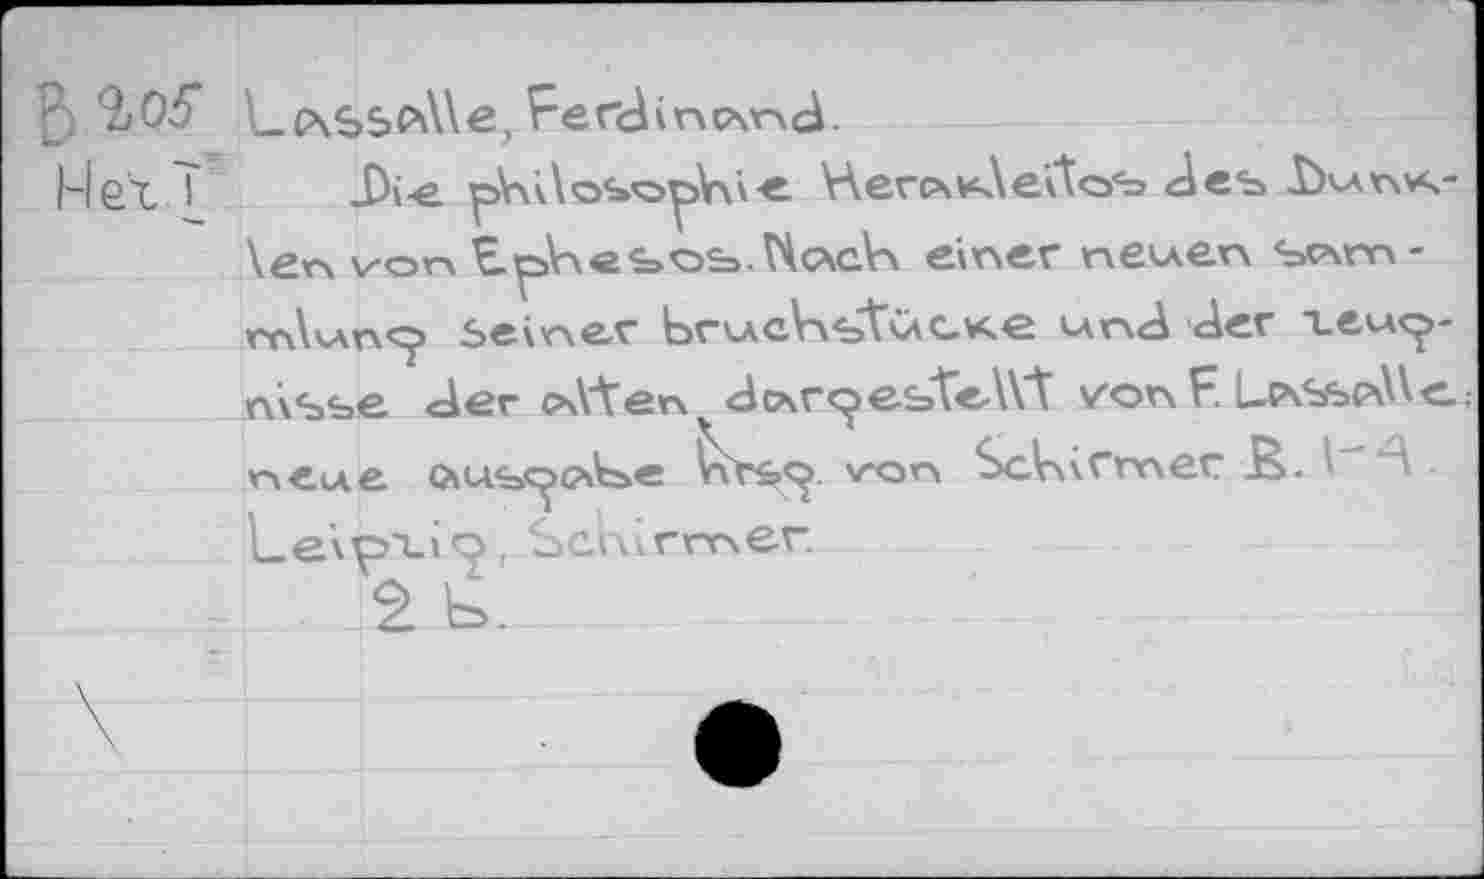 B 205 Lassalle, Ferdinand.
Her. T Die philosophie Herakleitos des Dunk-
len von Ephesos. Nach einer neuen sam-
mlung seiner bruchstücke und der zeug-
nisse der alten dargestellt von F. Lassalle.;
neue ausgabe hrsg. von Schirmer B. 1-4.
Leipzig, Schirmer.
2 b.